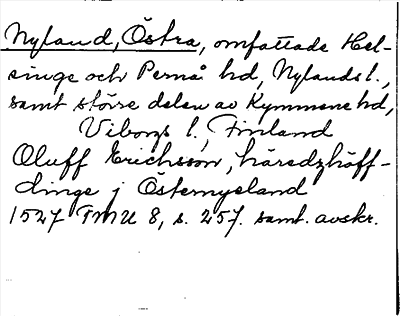 Nyland, Östra, omfattade Hel-
singe och Pernå hd, Nylands l.,
samt större delen av Kymmene hd,
Viborgs l., Finland
Oluff Erichsson, häredzhöff-
dinge j Östernyeland
1527 TMU 8, s. 257. samt. avskr.